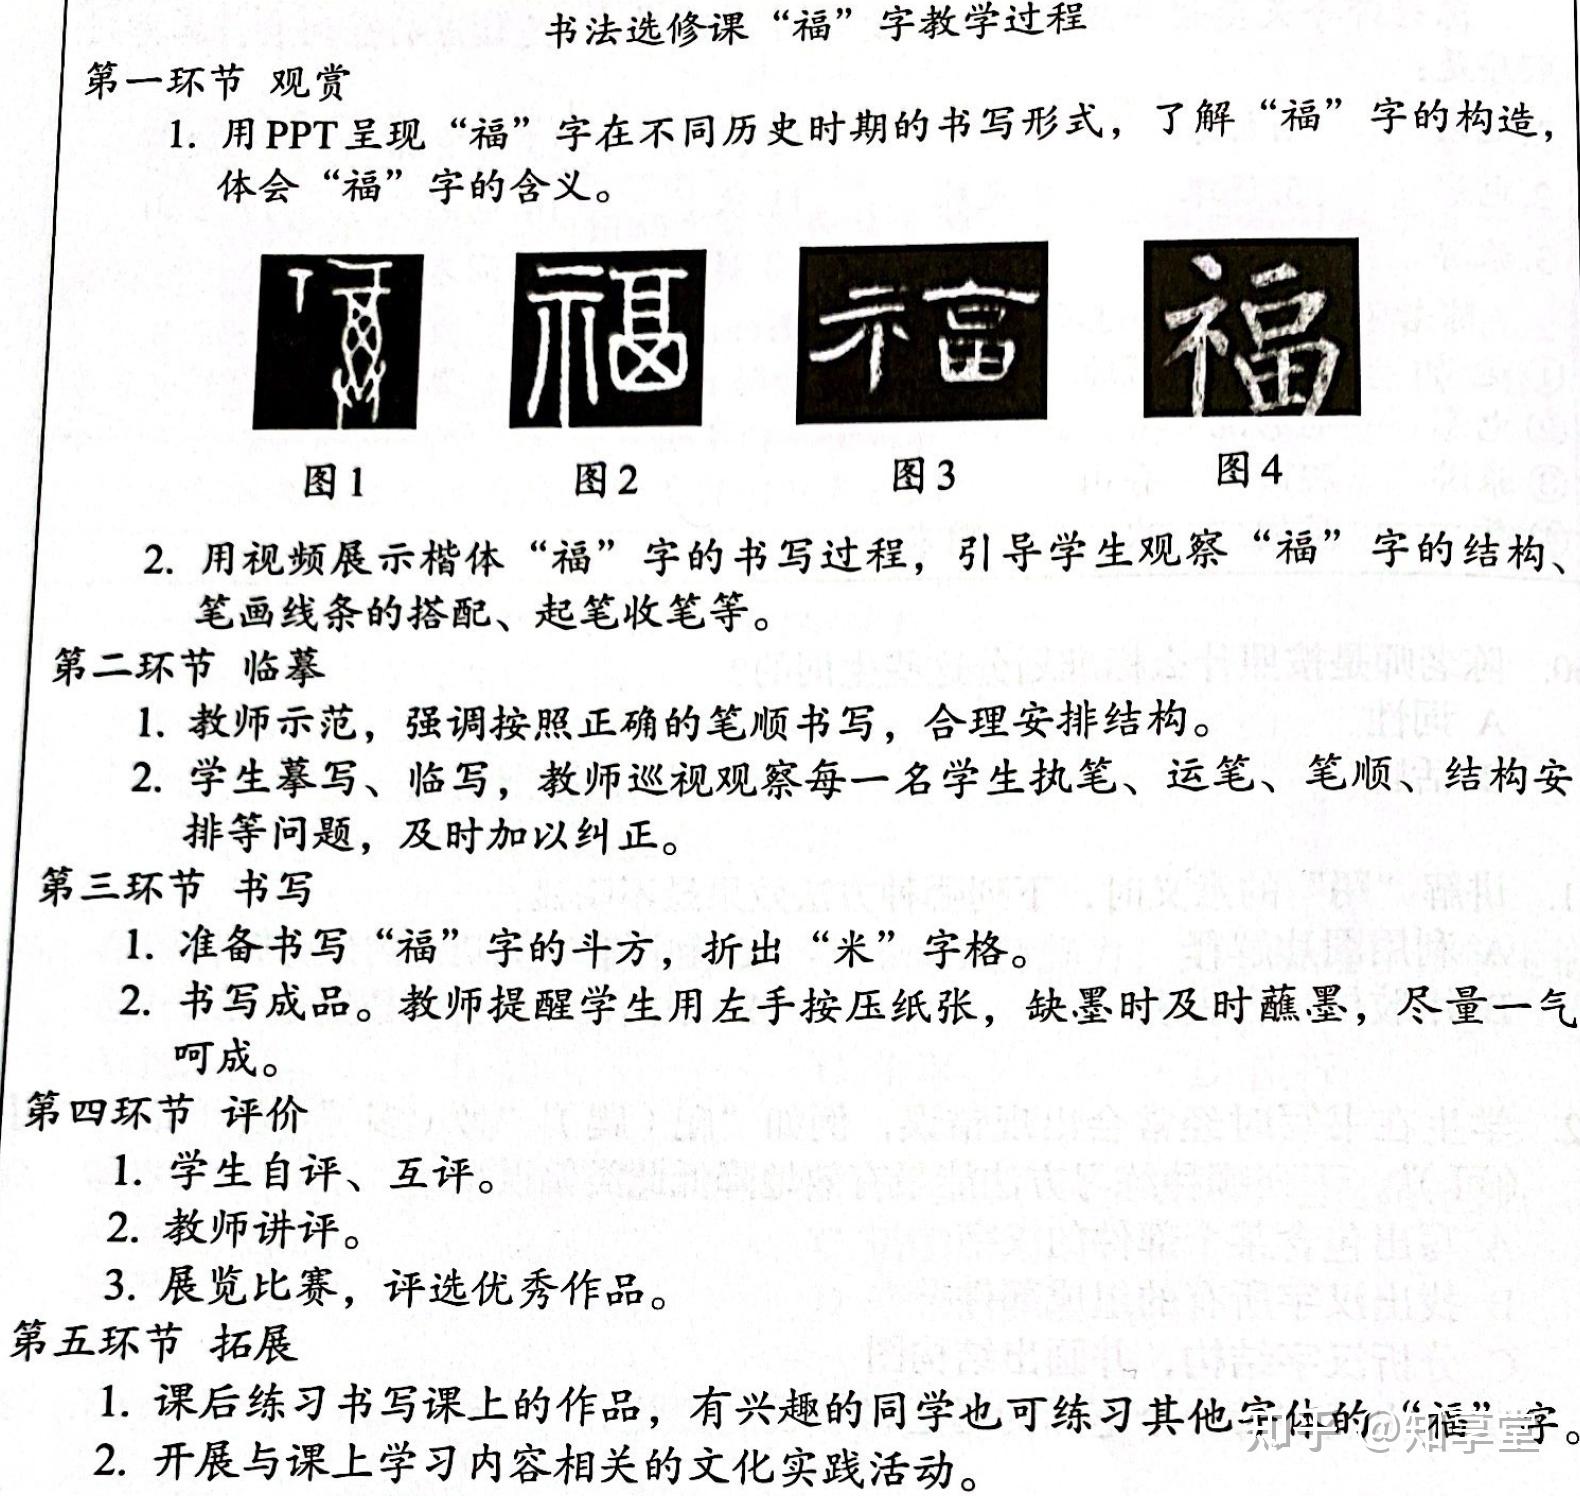 书法选修课“福”字教学过程
第一环节 观赏
1. 用PPT呈现“福”字在不同历史时期的书写形式，了解“福”字的构造，
体会“福”字的含义。
福 福 福
图1 图2 图3 图4
2. 用视频展示楷体“福”字的书写过程，引导学生观察“福”字的结构、
笔画线条的搭配、起笔收笔等。
第二环节 临摹
1. 教师示范，强调按照正确的笔顺书写，合理安排结构。
2. 学生摹写、临写，教师巡视观察每一名学生执笔、运笔、笔顺、结构安
排等问题，及时加以纠正。
第三环节 书写
1. 准备书写“福”字的斗方，折出“米”字格。
2. 书写成品。教师提醒学生用左手按压纸张，缺墨时及时蘸墨，尽量一气
呵成。
第四环节 评价
1. 学生自评、互评。
2. 教师讲评。
3. 展览比赛，评选优秀作品。
第五环节 拓展
1. 课后练习书写课上的作品，有兴趣的同学也可练习其他字体的“福”字。
知乎 @知享堂
2. 开展与课上学习内容相关的文化实践活动。